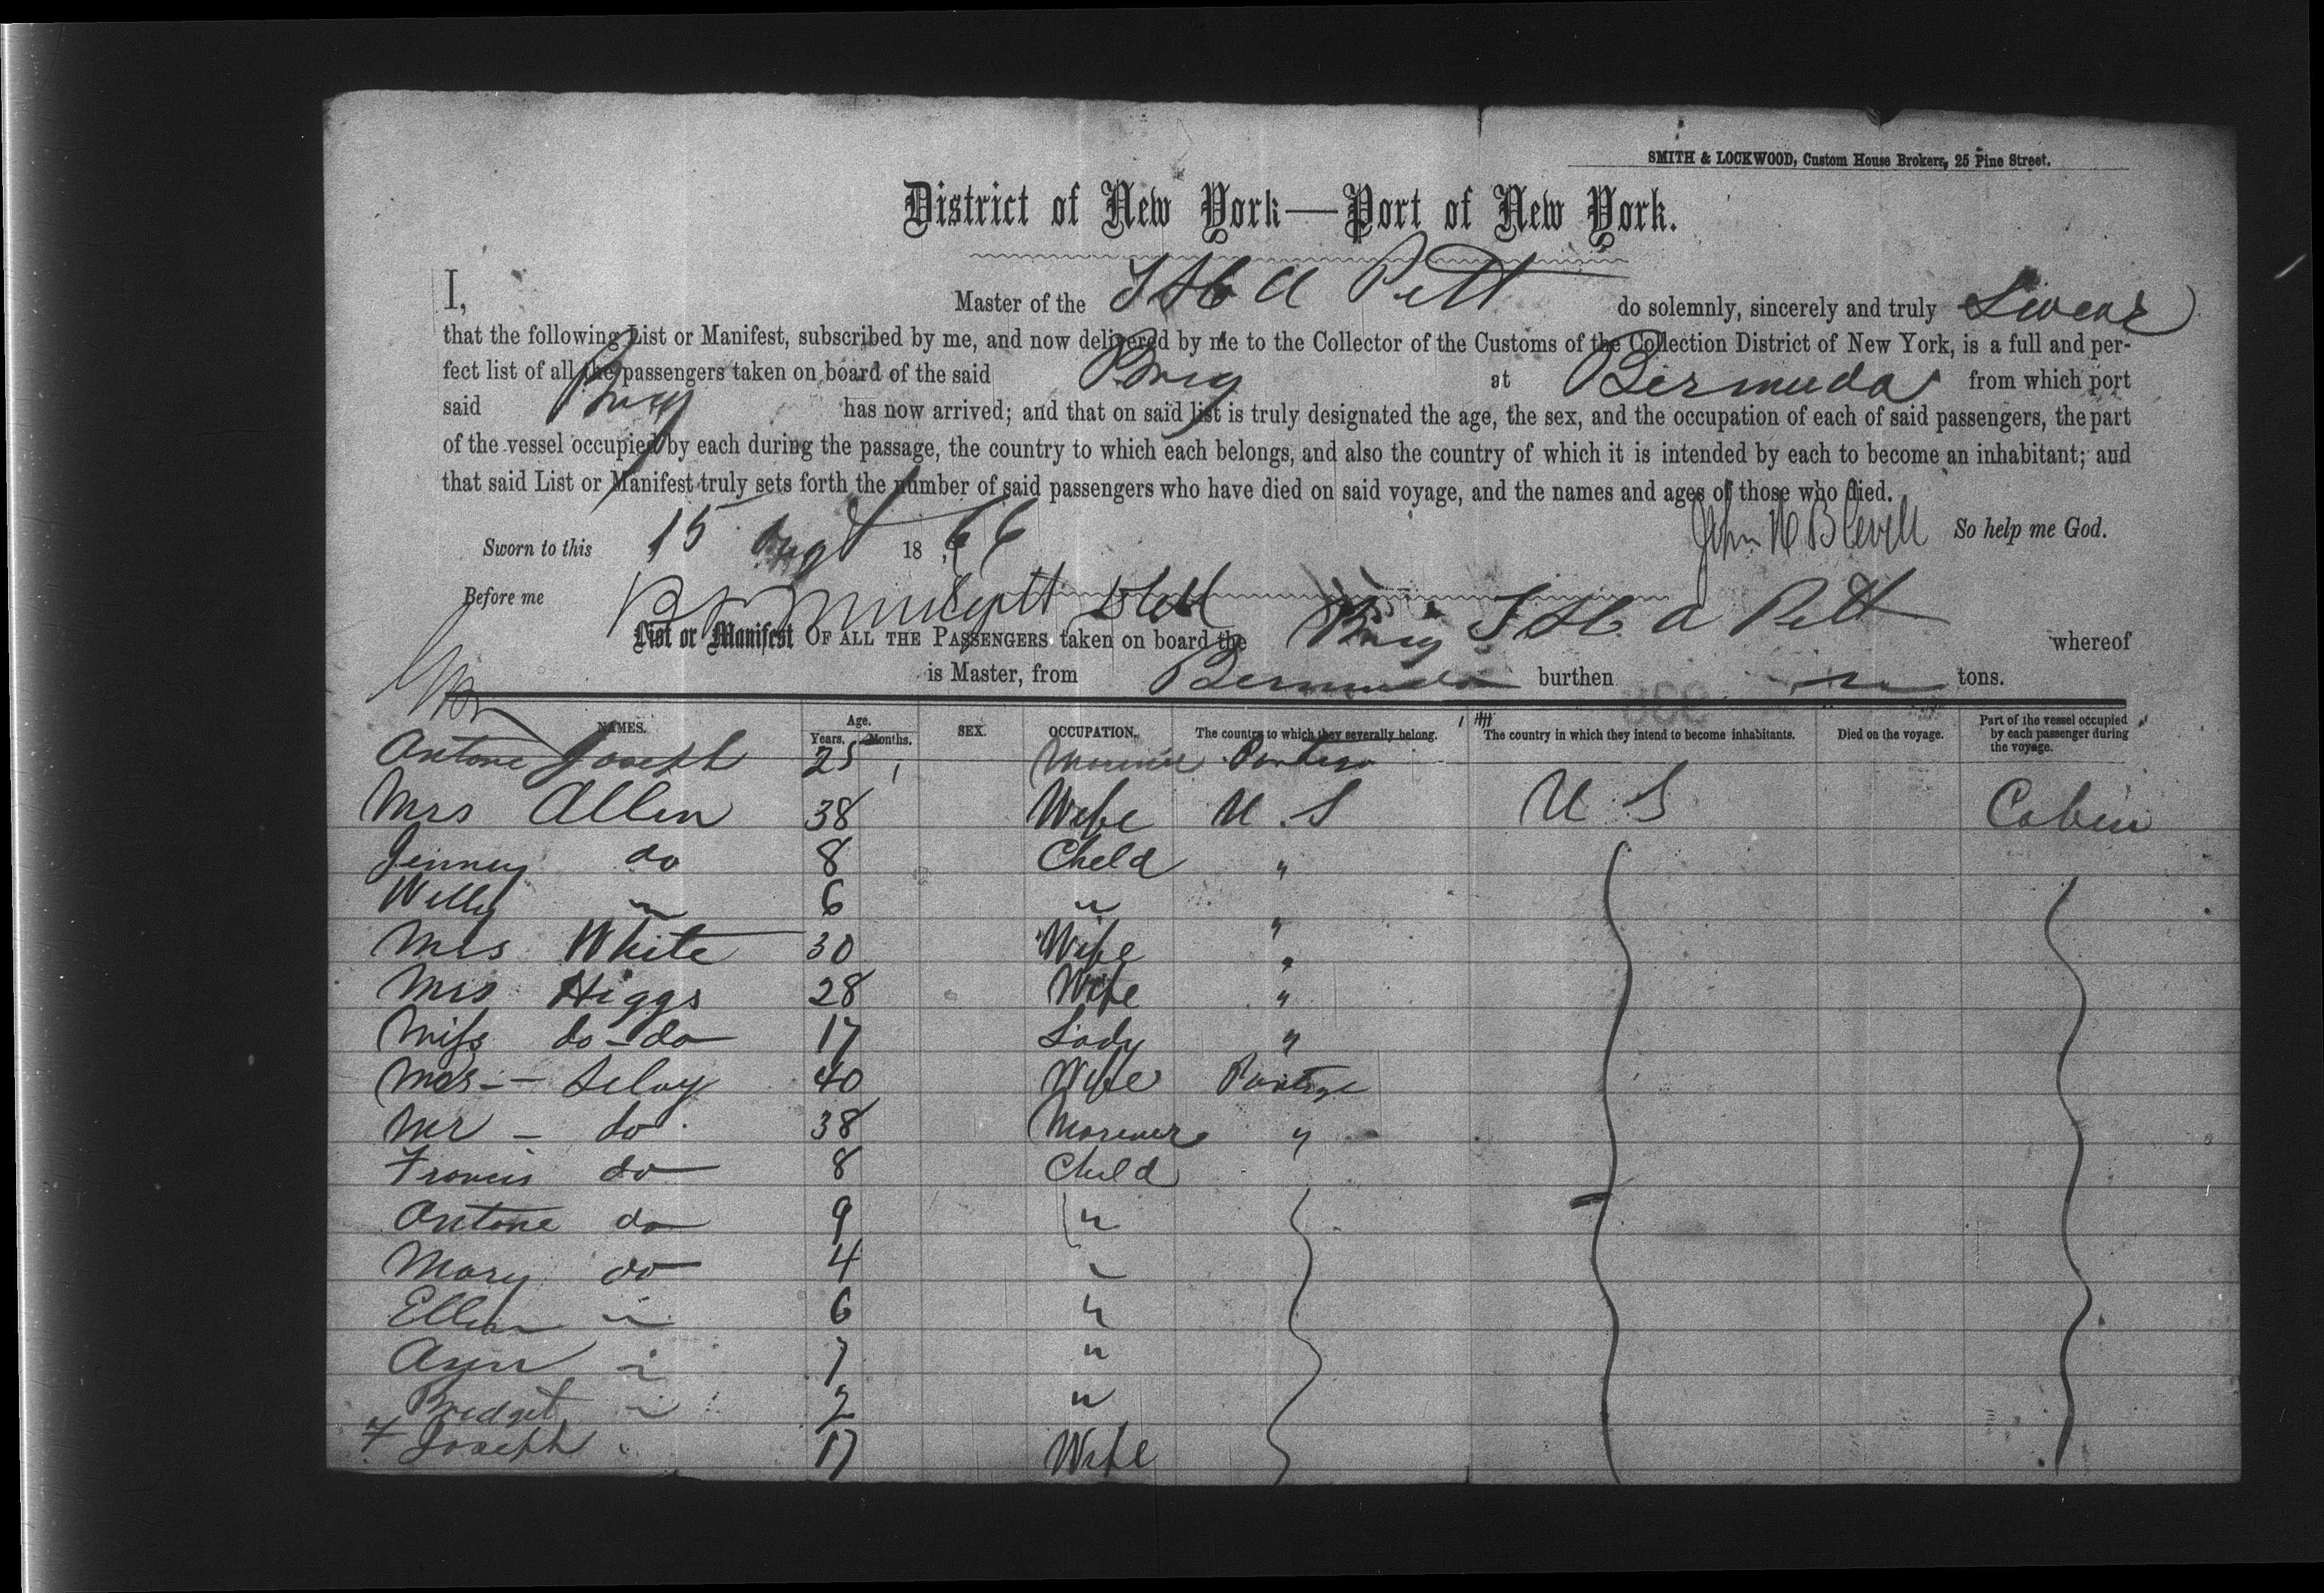 SMITH & LOCKWOOD, Custom House Brokers, 25 Pine Street.
District of New York—Port of New York.
I, Master of the T H A Pitt do solemnly, sincerely and truly Swear
that the following List or Manifest, subscribed by me, and now delivered by me to the Collector of the Customs of the Collection District of New York, is a full and per-
fect list of all the passengers taken on board of the said Brig at Bermuda from which port
said Brig has now arrived; and that on said list is truly designated the age, the sex, and the occupation of each of said passengers, the part
of the vessel occupied by each during the passage, the country to which each belongs, and also the country of which it is intended by each to become an inhabitant; and
that said List or Manifest truly sets forth the number of said passengers who have died on said voyage, and the names and ages of those who died.
Sworn to this 15 Augt 1866 John So help me God.
Before me
List or Manifest OF ALL THE PASSENGERS taken on board the Brig T H A Pitt whereof
is Master, from Bermuda burthen tons.
NAMES. Age. Years. Months. SEX. OCCUPATION. The country to which they severally belong. The country in which they intend to become inhabitants. Died on the voyage. Part of the vessel occupied by each passenger during the voyage.
Antone Joseph 25 Mariner
Mrs Allen 38 Wife U.S U S Cabin
Jenney do 8 Child "
Willy " 6 " "
Mrs White 30 Wife "
Mrs Higgs 28 Wife "
Miss do-do 17 Lady "
Mrs -- Selvy 40 Wife
Mr - do 38 Marener "
Francis do 8 Child
Antone do 9 "
Mary do 4 "
Ellen " 6 "
Ann " 7 "
Bridget " 2 "
F Joseph 17 Wife